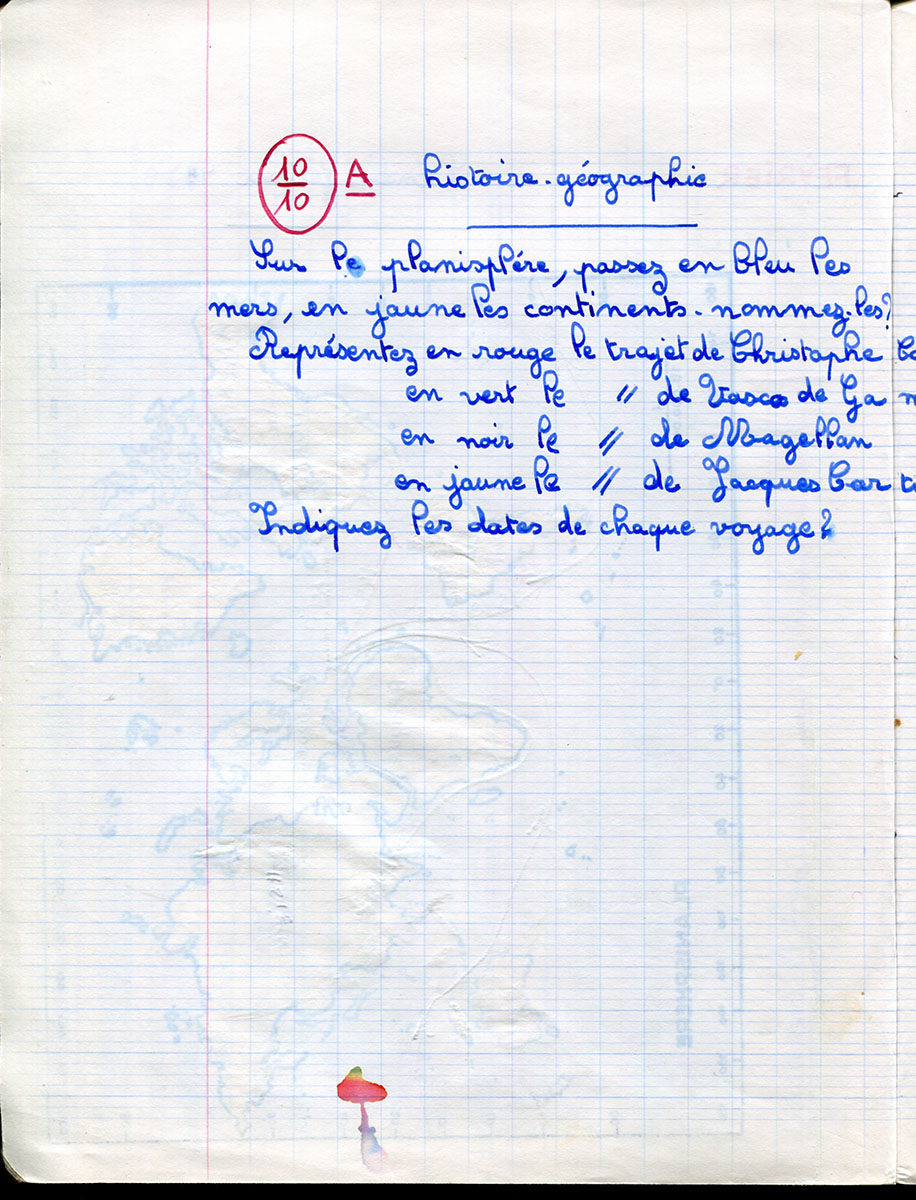 10/10 A histoire-géographie
Sur le planisphère, passez en bleu les
mers, en jaune les continents. nommez-les?
Représentez en rouge le trajet de Christophe Co
en vert le // de Vasco de Ga m
en noir le // de Magellan
en jaune le // de Jacques Car ti
Indiquez les dates de chaque voyage?
PLANISPHERE